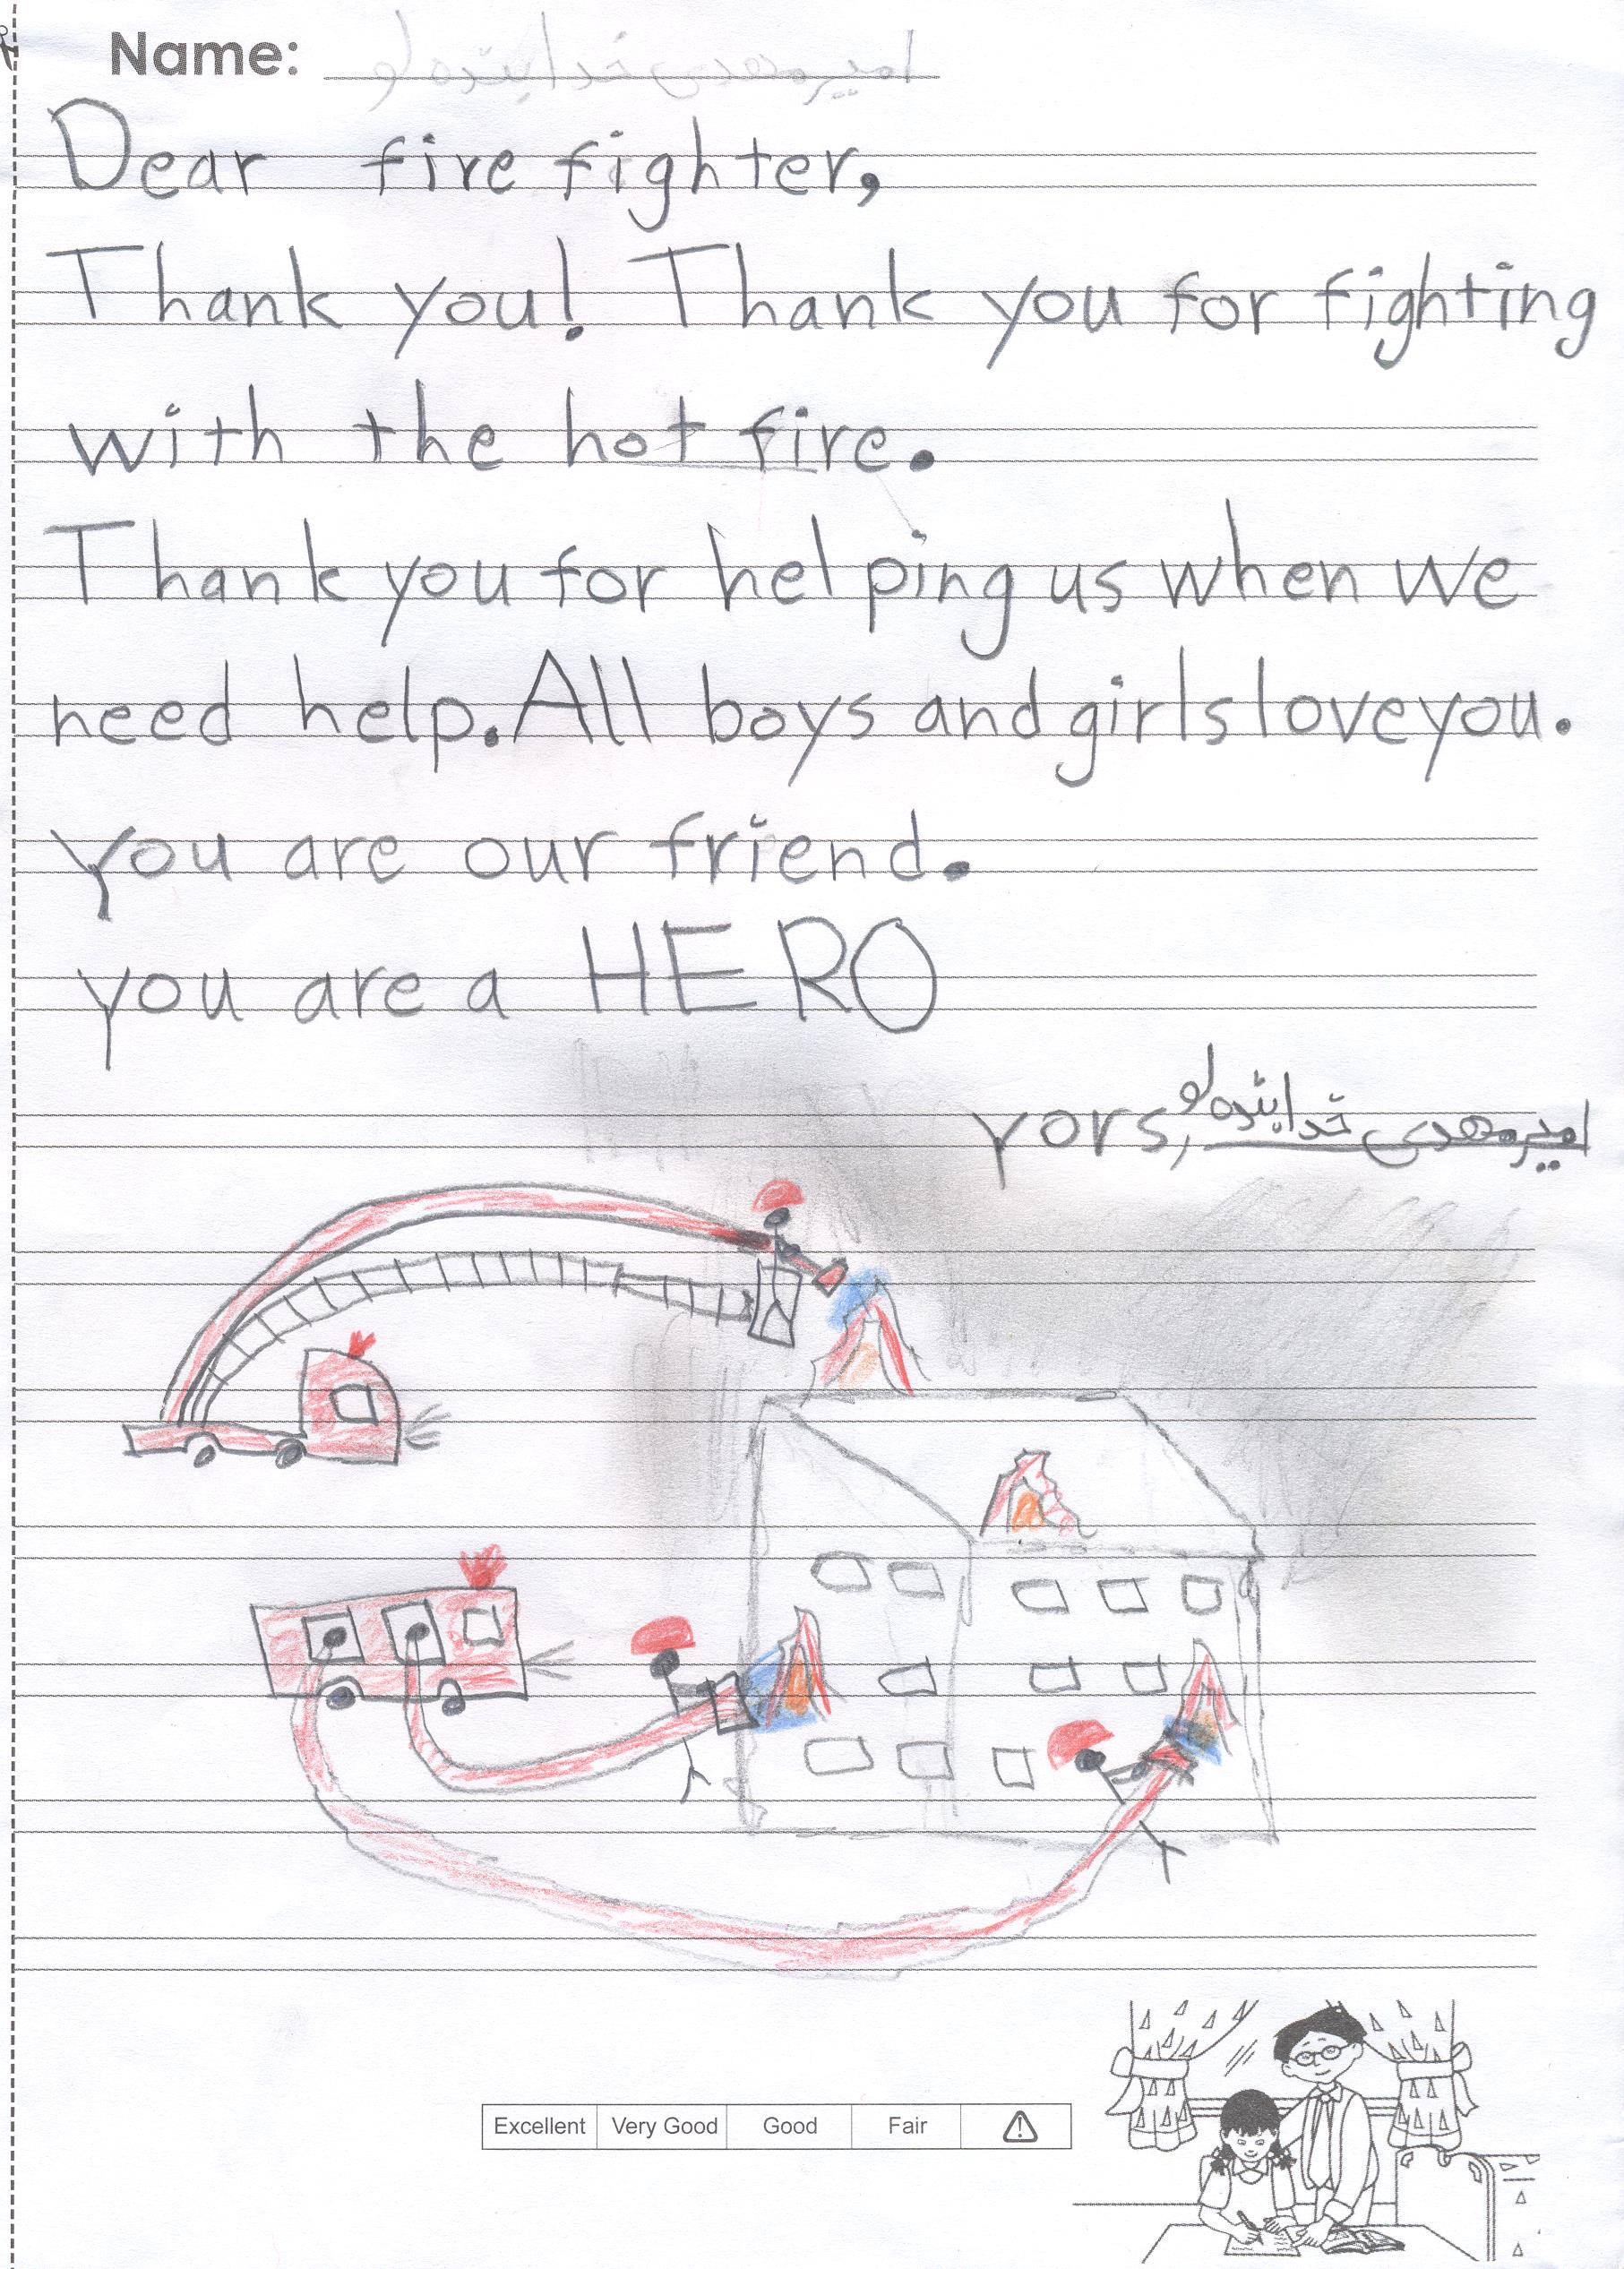 Name: امیرمهدی خدابنده لو
Dear fire fighter,
Thank you! Thank you for fighting
with the hot fire.
Thank you for helping us when we
need help. All boys and girls love you.
you are our friend.
you are a HERO
yors, امیرمهدی خدابنده لو
Excellent Very Good Good Fair